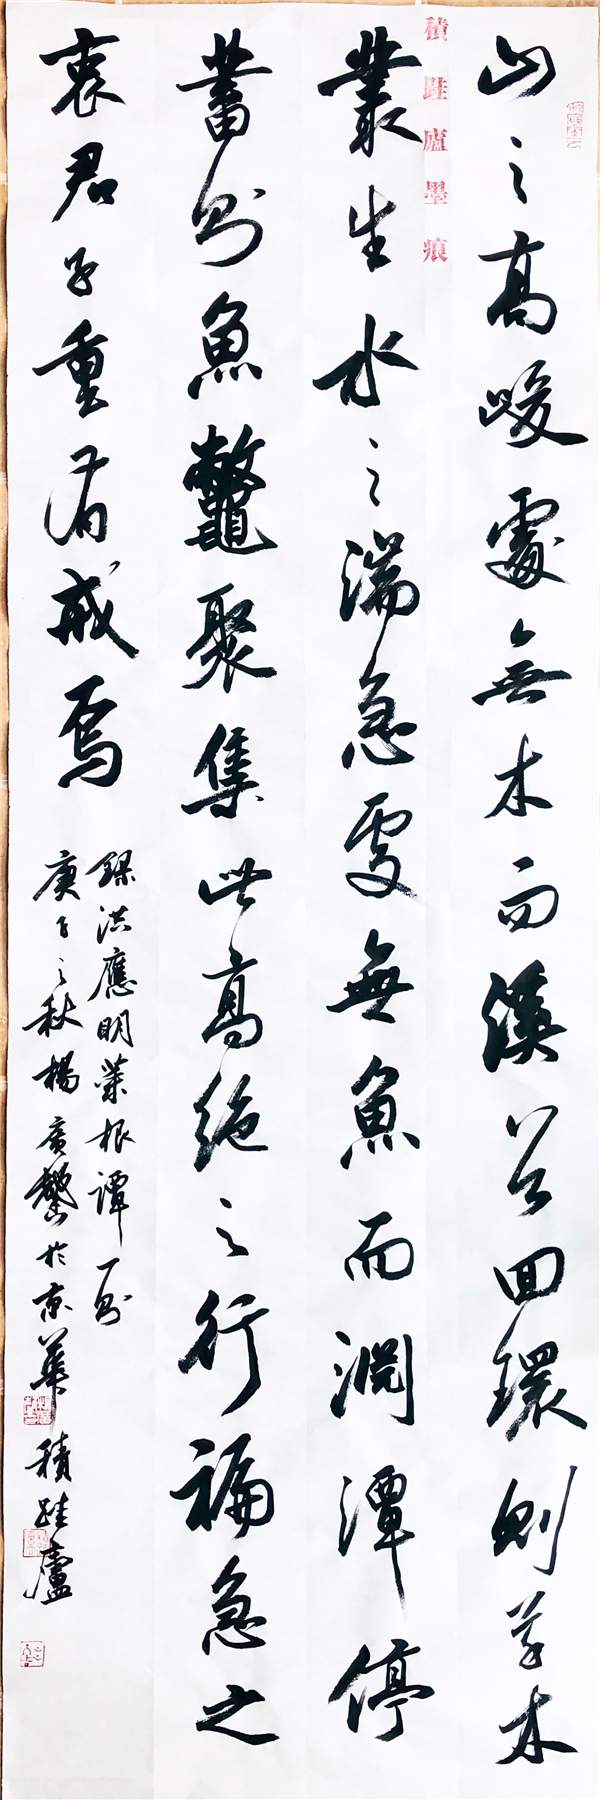 山之高峻處無木而溪谷回環則草木
積跬廬墨痕
叢生水之湍急處無魚而淵潭停
蓄則魚鼈聚集此高絕之行褊急之
衷君子重有戒焉
錄洪應明菜根譚一則
庚子之秋楊廣馨於京華積跬廬